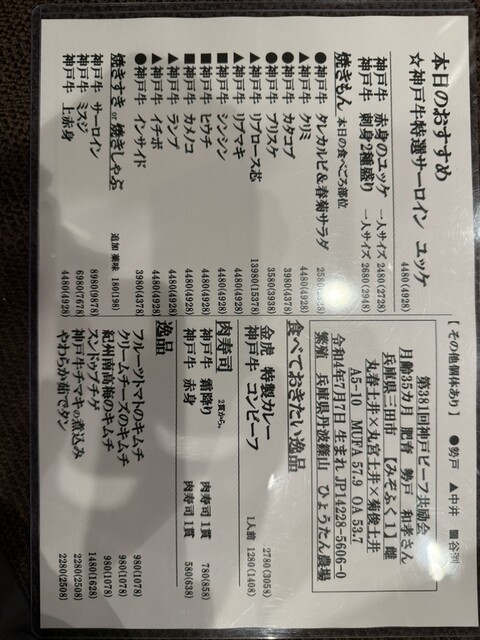 本日のおすすめ
☆神戸牛特選サーロイン ユッケ 4480(4928)
神戸牛 赤身のユッケ 一人サイズ 2480(2728)
神戸牛 刺身2種盛り 一人サイズ 2680(2948)
焼きもん 本日の食べごろ部位
●神戸牛 タレカルビ&春菊サラダ
▲神戸牛 クリミ 4480(4928)
●神戸牛 カタコブ 3980(4378)
●神戸牛 ブリスケ 3580(3938)
▲神戸牛 リブロース芯 13980(15378)
▲神戸牛 リブマキ 4480(4928)
■神戸牛 シンシン 4480(4928)
■神戸牛 ヒウチ 4480(4928)
■神戸牛 カメノコ 4480(4928)
▲神戸牛 ランプ 4480(4928)
▲神戸牛 イチボ 4480(4928)
●神戸牛 インサイド 3980(4378)
焼きすき or 焼きしゃぶ 追加 薬味 180(198)
神戸牛 サーロイン 8980(9878)
神戸牛 ミスジ 6980(7678)
神戸牛 上赤身 4480(4928)
【その他個体あり】 ●勢戸 ▲中井 ■谷渕
第381回神戸ビーフ共励会
月齢35カ月 肥育 勢戸 和孝さん
兵庫県三田市 【みぞふく1】雌
丸春土井×丸宮土井×菊俊土井
A5-10 MUFA 57.9 OA 53.7
令和4年7月7日 生まれ JP14228-5606-0
繁殖 兵庫県丹波篠山 ひょうたん農場
食べておきたい逸品
金虎 特製カレー 2780(3058)
神戸牛 コンビーフ 1人前 1280(1408)
肉寿司 2貫から。
神戸牛 霜降り 肉寿司 1貫 780(858)
神戸牛 赤身 肉寿司 1貫 580(638)
逸品
フルーツトマトのキムチ 980(1078)
クリームチーズのキムチ 980(1078)
紀州南高梅のキムチ 980(1078)
スンドゥブチゲ 1480(1628)
神戸牛チマキの煮込み 2280(2508)
やわらか茹でタン 2280(2508)